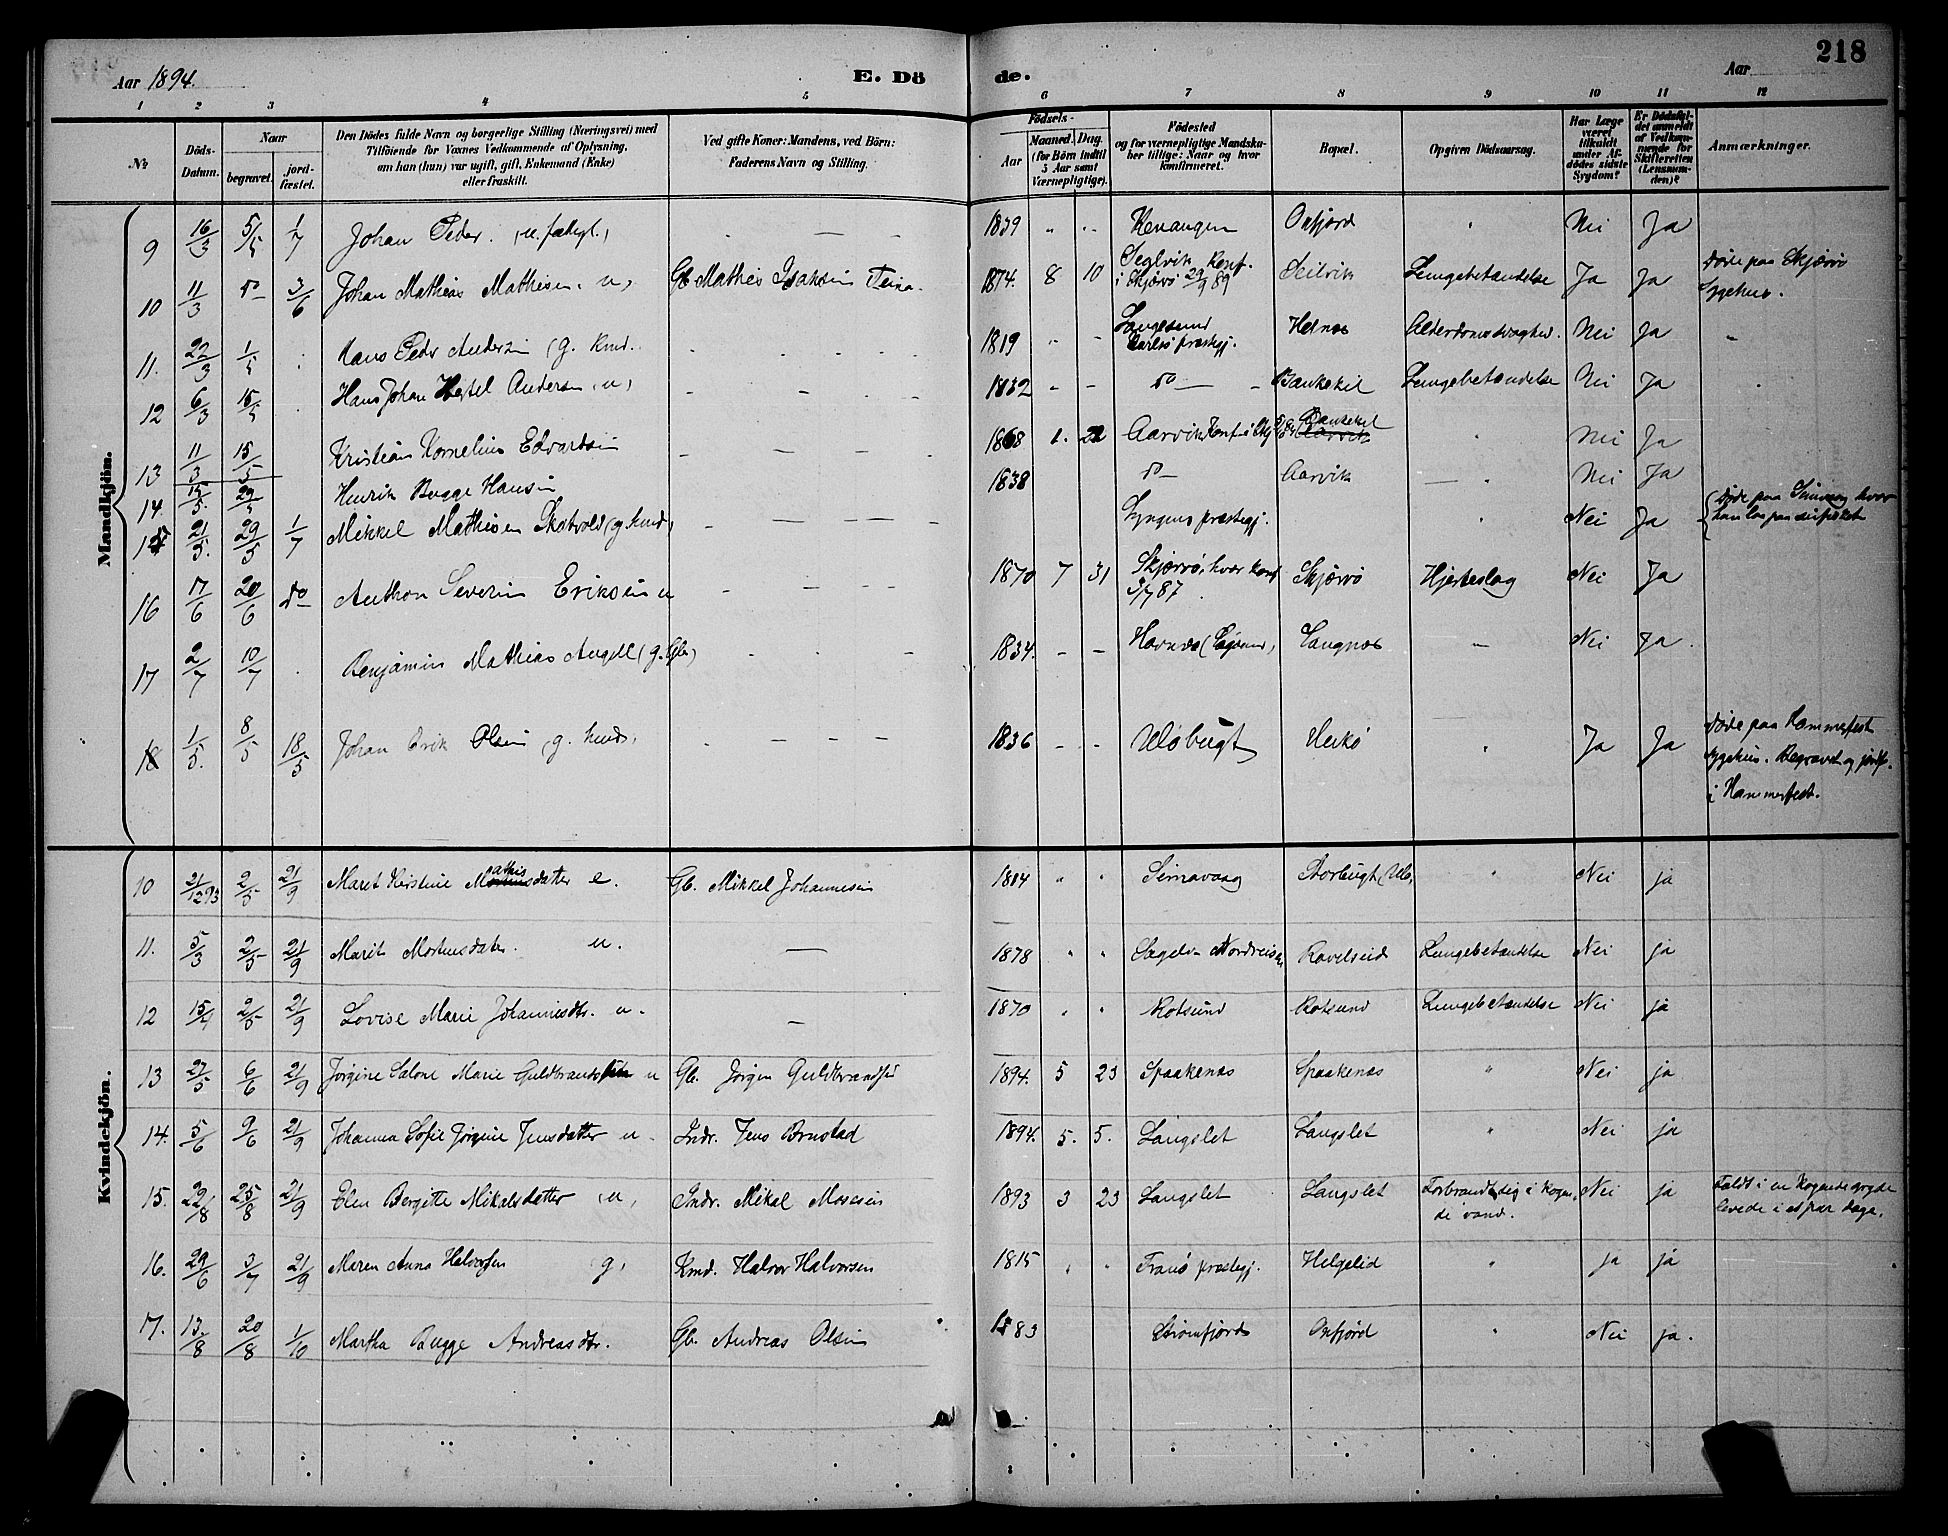 218
Aar 1894.
E. Dö de.
Aar
1 2 3 4 5 6 7 8 9 10 11 12
No
Döds-Datum.
Naar
begravet.
jord-fæstet.
Den Dödes fulde Navn og borgerlige Stilling (Næringsvei) med
Tilföiende for Voxnes Vedkommende af Oplysning,
om han (hun) var ugift, gift, Enkemand (Enke)
eller fraskilt.
Ved gifte Koner: Mandens, ved Börn:
Faderens Navn og Stilling.
Födsels-
Aar
Maaned. Dag.
(for Börn indtil
5 Aar samt
Værnepligtige).
Födested
og for værnepligtige Mandska-
ber tillige: Naar og hvor
konfirmeret.
Bopæl.
Opgiven Dödsaarsag.
Har Læge
været
tilkaldt
under Af-
dödes sidste
Sygdom?
Er Dödsfal-
det anmeldt
af Vedkom-
mende for
Skifteretten
(Lensman-
den)?
Anmærkninger.
Mandkjön.
9 16/3 5/5 1/7 Johan Peder. 1839 " " Kvænangen Oxfjord " Nei Ja
10 11/3 do 3/6 Johan Mathias Mathisen. u, Gb Mathis Isaksen 1874. 8 10 Seglvik Konf. i Skjærvö 29/9 89 Seilvik Lungebetændelse Ja Ja Döde paa Skjærvö Sygehus.
11. 22/3 1/5 Hans Peder Andersen (g. kmd. 1819 " - Langesund Carlsö præstegj. Helnæs Alderdomssvaghed. Nei Ja "
12 6/3 15/5 Hans Johan Hertel Andersen u, 1832 - - do Bankekil Lungebetændelse Nei Ja
13 11/3 15/5 Kristian Kornelius Edvardsen 1868 1. 22 Aarvik Bankekil Nei Ja
14. 15/5. 29/5 Henrik Bugge Hansen 1838 do Aarvik " Nei Ja
15 21/5. 29/5 1/7 Mikkel Mathisen Skotvold (g. kmd, Lyngens præstegj. " Nei Ja
16 17/6 20/6 do Anthon Severin Eriksen u 1870 7 31 Skjærvö, hvor konf 3/7 87. Skjærvö Hjerteslag Nei Ja
17 2/7 10/7 . Benjamin Mathias Angell (g. Gb,) 1834. - - Havnæs Langnæs - Nei Ja.
18 1/5. 8/5 18/5 Johan Erik Olsen (g. kmd, 1836 - - Ulöbugt Hekö " Ja Ja Döde paa Hammerfest Sygehus. Begravet og jordf. i Hammerfest.
Kvindekjön.
10 21/12 93 2/5 21/9 Maret Kirstine Mathisdatter e. Gb. Mikkel Johannesen 1814 " " Simavaag Storbugt (Ulö, " Nei ja
11. 5/3 2/5 21/9 Marit Mortensdatter. u. — 1878 " " Sagelv Nordreisen Ravelseid Lungebetændelse Nei ja
12 15/4 2/5 21/9 Lovise Marie Johannesdtr. u. — 1870 " " Rotsund Rotsund Lungebetændelse Nei ja
13 27/5 6/6 21/9 Jörgine Salone Marie Guldbrandsen u Gb. Jörgen Guldbrandsen 1894. 5 23 Spaakenæs Spaakenæs " Nei ja
14. 5/6 9/6 21/9 Johanna Sofie Jörgine Jensdatter u. Indr. Jens Brustad 1894. 5. 5. Langslet Langslet " Nei ja
15. 22/8 25/8 21/9 Elen Bergitte Mikalsdatter u, Indr. Mikal Mosesen 1893 3 23 Langslet Langslet Forbrændte sig i kogen-de vand. Nei ja Faldt i en kogende gryde levede i et par dage.
16. 29/6 3/7 21/9 Maren Anna Halvorsen g, Kmd. Halvor Halvorsen 1815 " " Tranö præstegj. Helgelid " ja ja
17. 13/8 20/8 1/10 Martha Bugge Andreasdtr. Gb. Andreas Olsen 1883 Strömfjord Oxfjord " Nei ja.